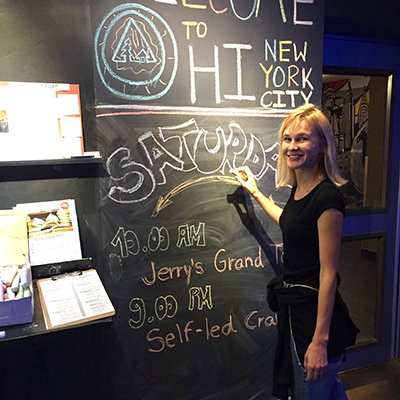 WELCOME
TO
HI
NEW
YORK
CITY
SATURDA
10:00 AM
Jerry's Grand
9:00 PM
Self-led